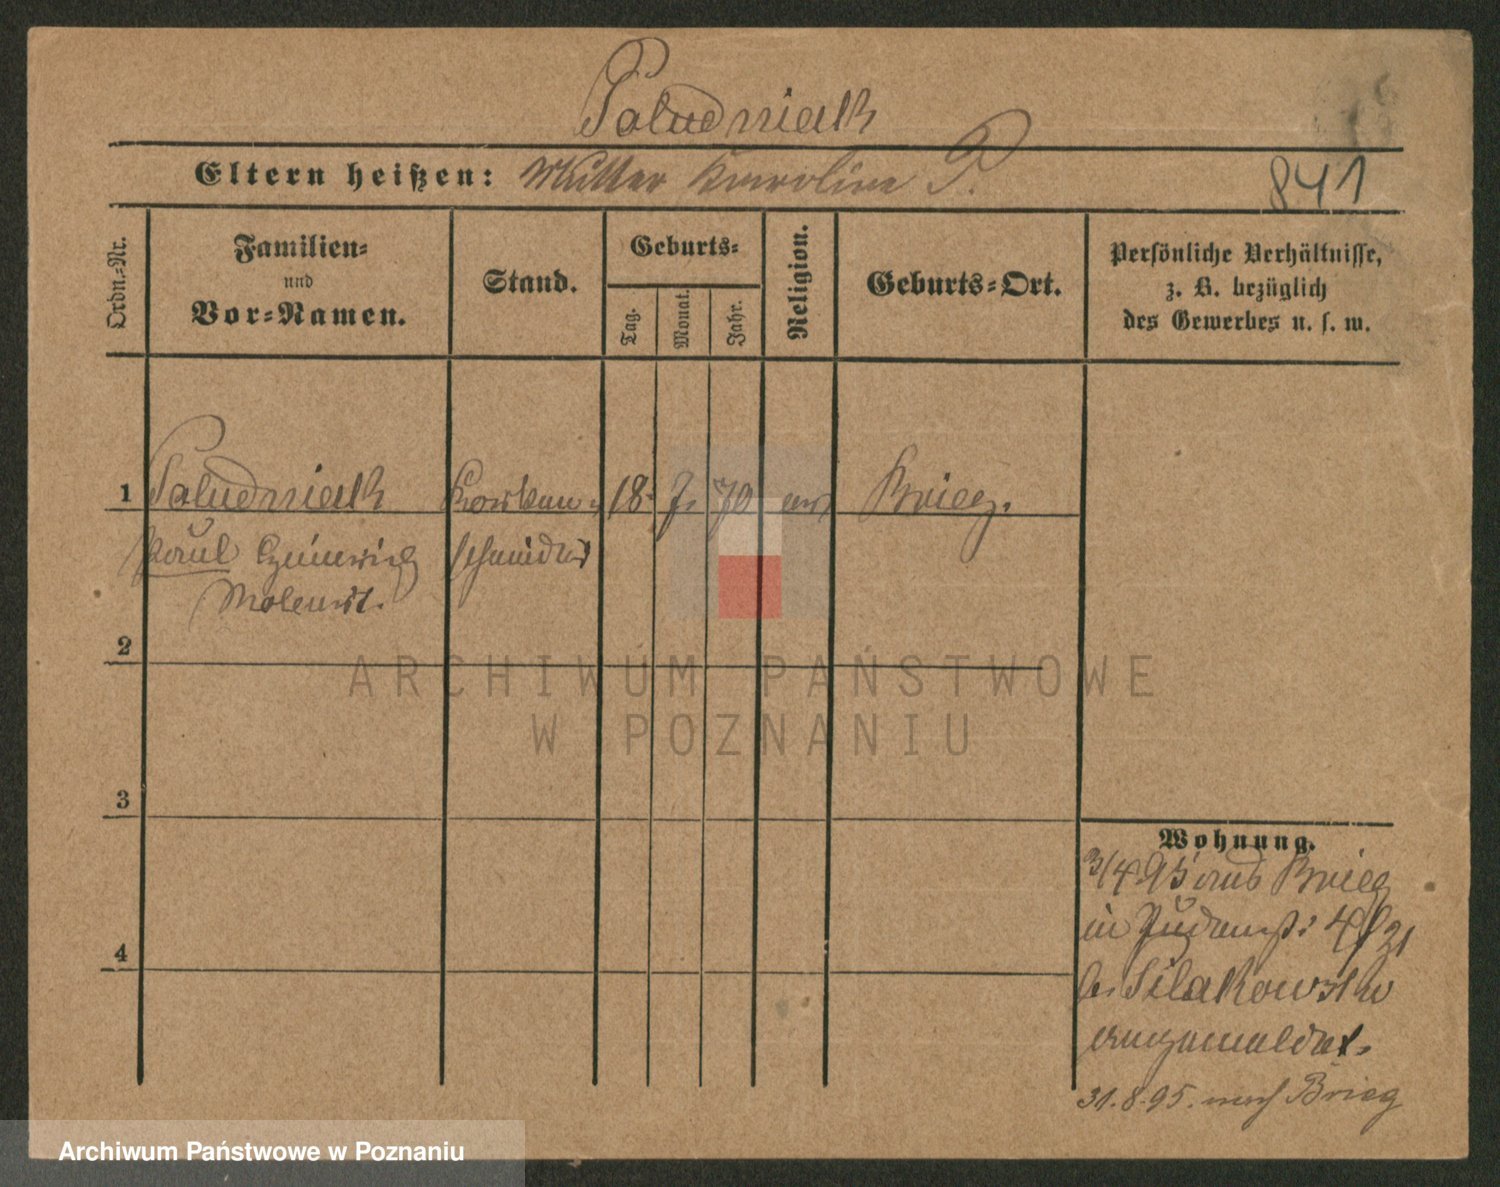 Paludniak
Eltern heißen: Mutter Karoline P.
841
Ordn.-Nr.
Familien-
und
Vor-Namen.
Stand.
Geburts-
Tag.
Monat.
Jahr.
Religion.
Geburts-Ort.
Persönliche Verhältnisse,
z. B. bezüglich
des Gewerbes u. s. w.
1 Paludniak 18. 7. 70 Brieg.
Paul schmied
2
3
4
Wohnung.
3/4 95 aus Brieg
in 4/21
angemeldet.
31.8.95. nach Brieg
ARCHIWUM PAŃSTWOWE
W POZNANIU
Archiwum Państwowe w Poznaniu